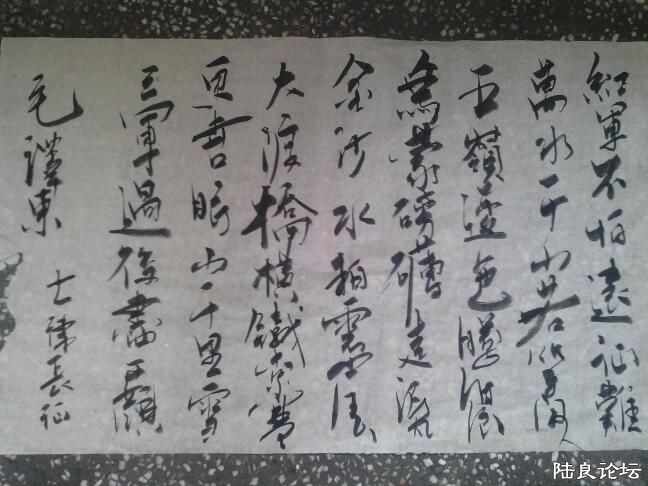 紅軍不怕遠征難
萬水千山
五嶺逶迤騰浪
烏蒙磅礴走泥丸
金沙水拍雲崖
大渡橋橫鐵索寒
更喜岷山千里雪
三軍過後盡開顏
毛澤東 七律長征
陆良论坛